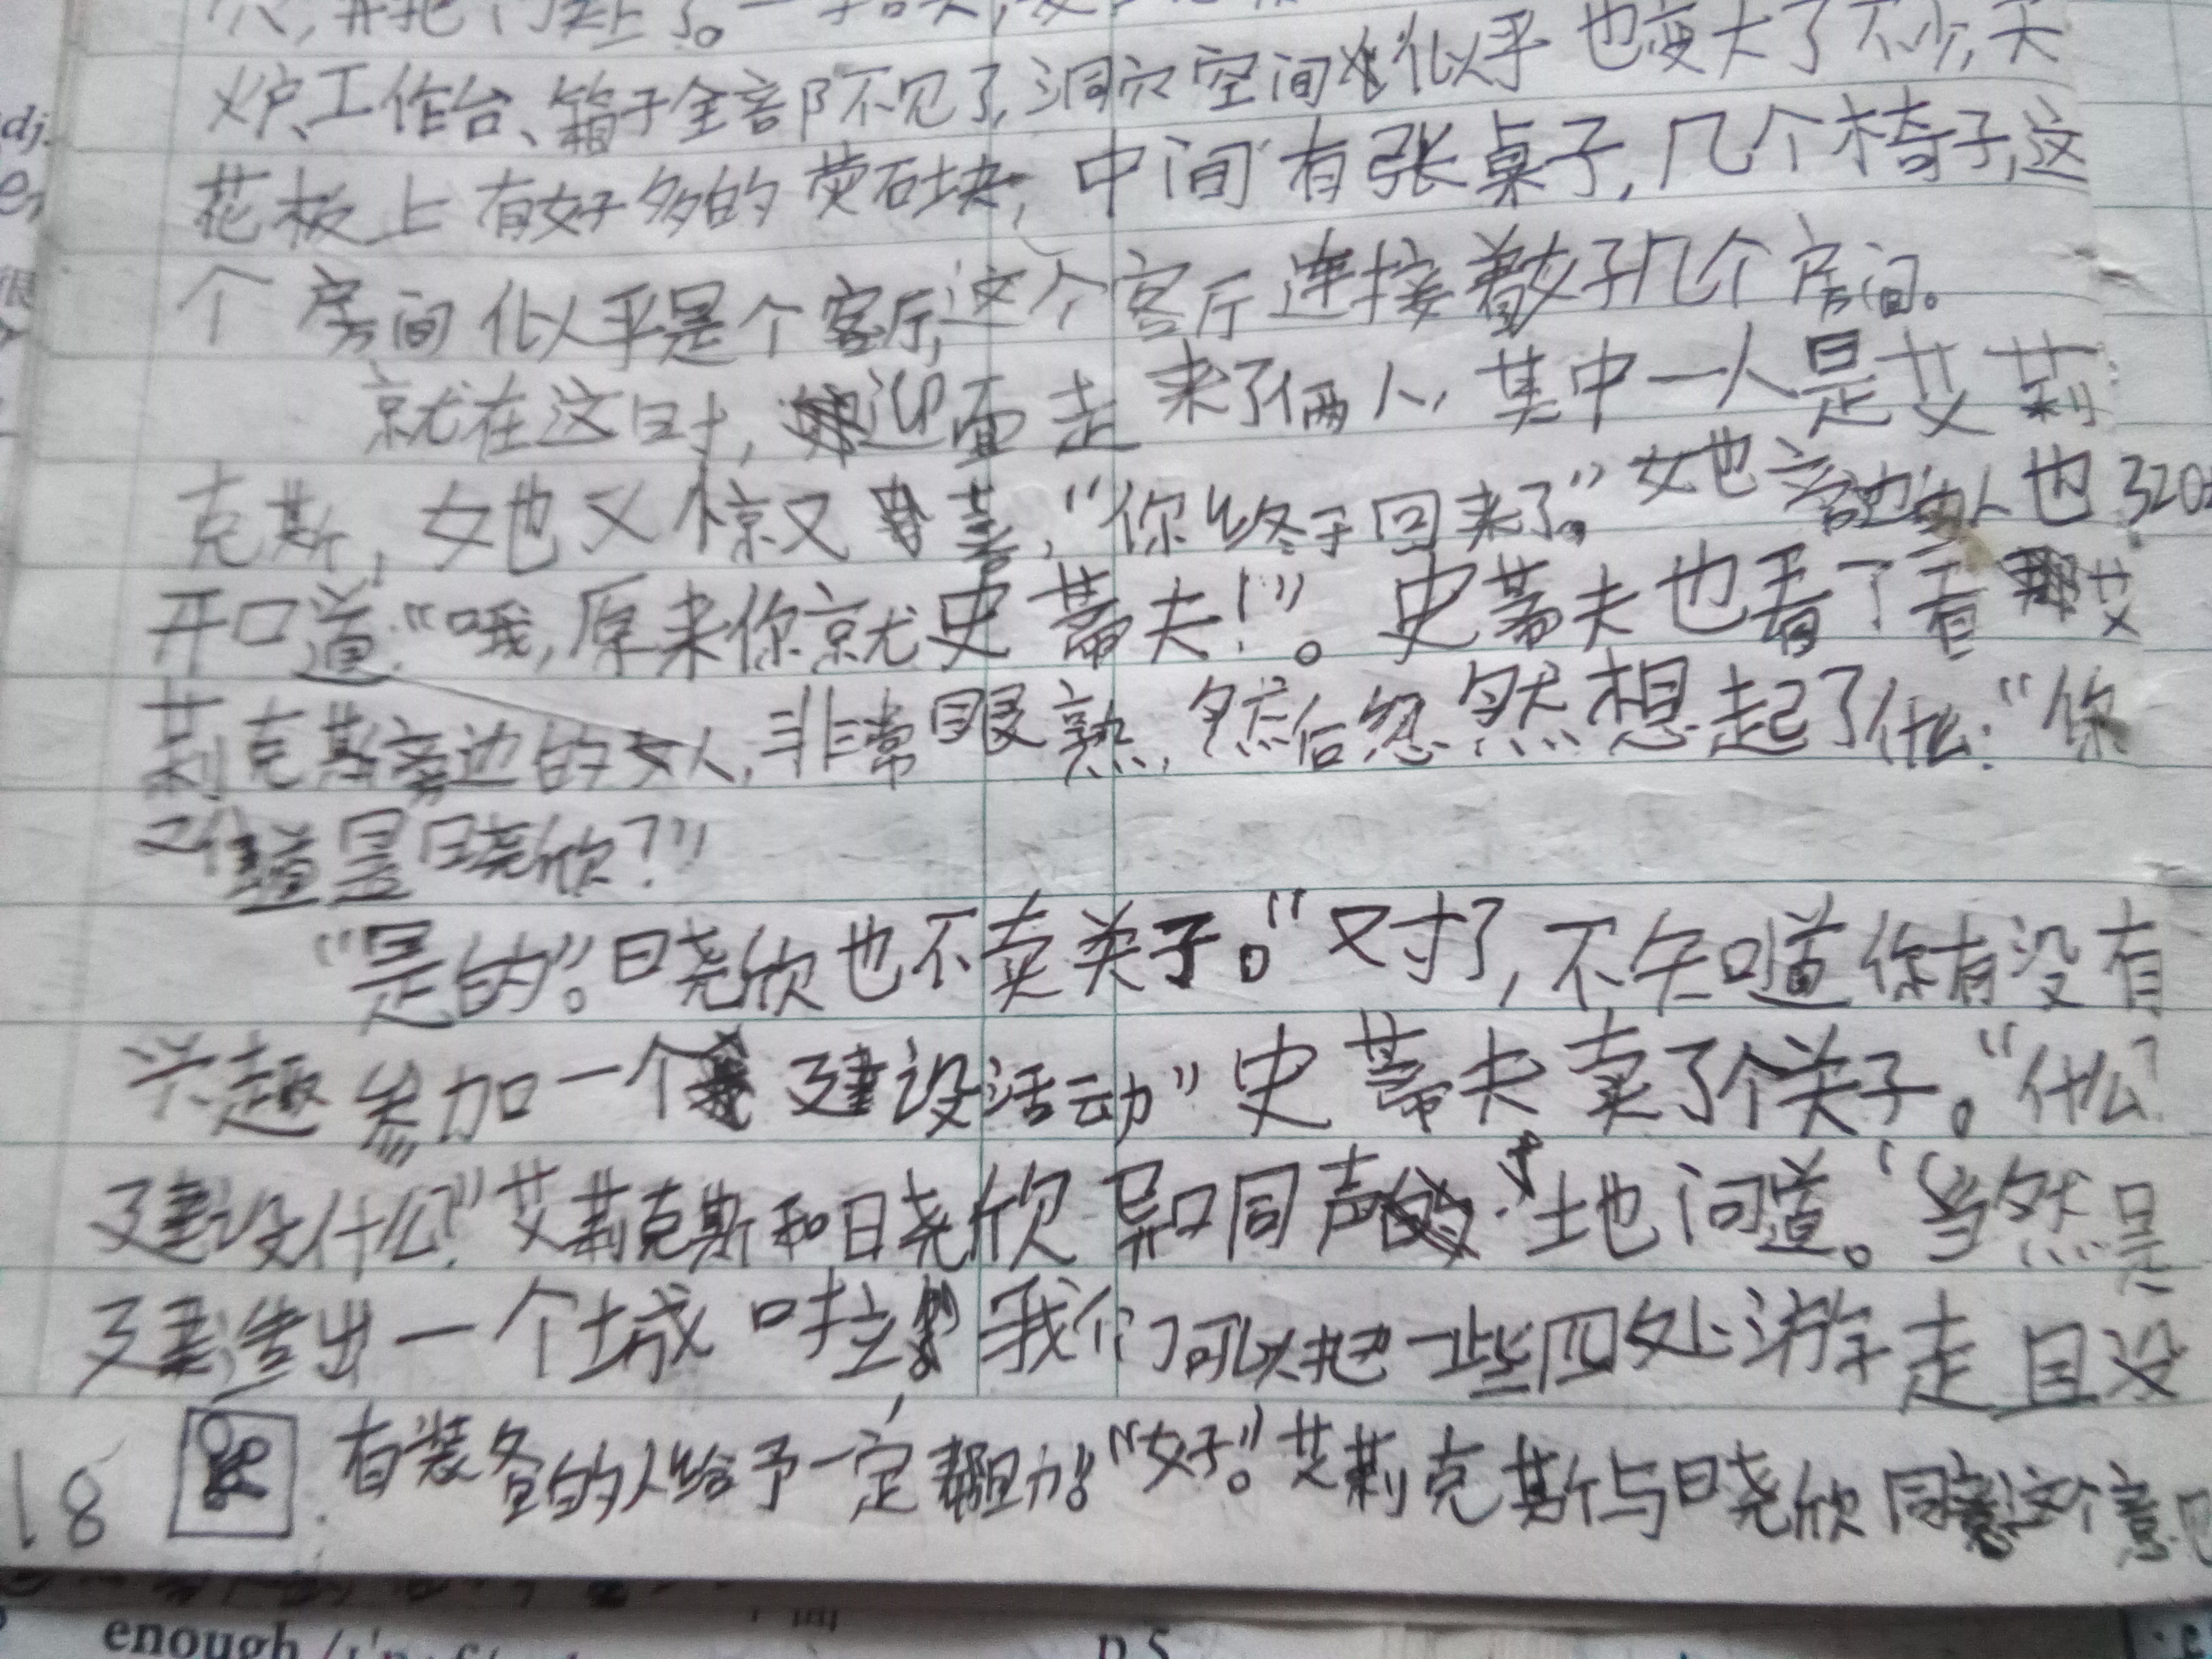 穴,并把门关上了。一
炉、工作台、箱子全部不见了,洞穴空间似乎也变大了不少,天
花板上有好多的荧石块,中间有张桌子,几个椅子,这
个房间似乎是个客厅,这个客厅连接着好几个房间。
就在这时,迎面走来了俩人,其中一人是艾莉
克斯,她又惊又喜,“你终于回来了。”她旁边的人也
开口道:“哦,原来你就史蒂夫!”。史蒂夫也看了看艾
莉克斯旁边的女人,非常眼熟,然后忽然想起了什么:“你
难道是晓欣?”
“是的”。晓欣也不卖关子。“对了,不知道你有没有
兴趣参加一个建设活动”史蒂夫卖了个关子。“什么?
建设什么?”艾莉克斯和晓欣异口同声地问道。“当然是
建造出一个城啦!我们可以把一些四处游走且没
18 有装备的人给予一定帮助。”“好。”艾莉克斯与晓欣同意这个意见
320
adj.
enough
p.5